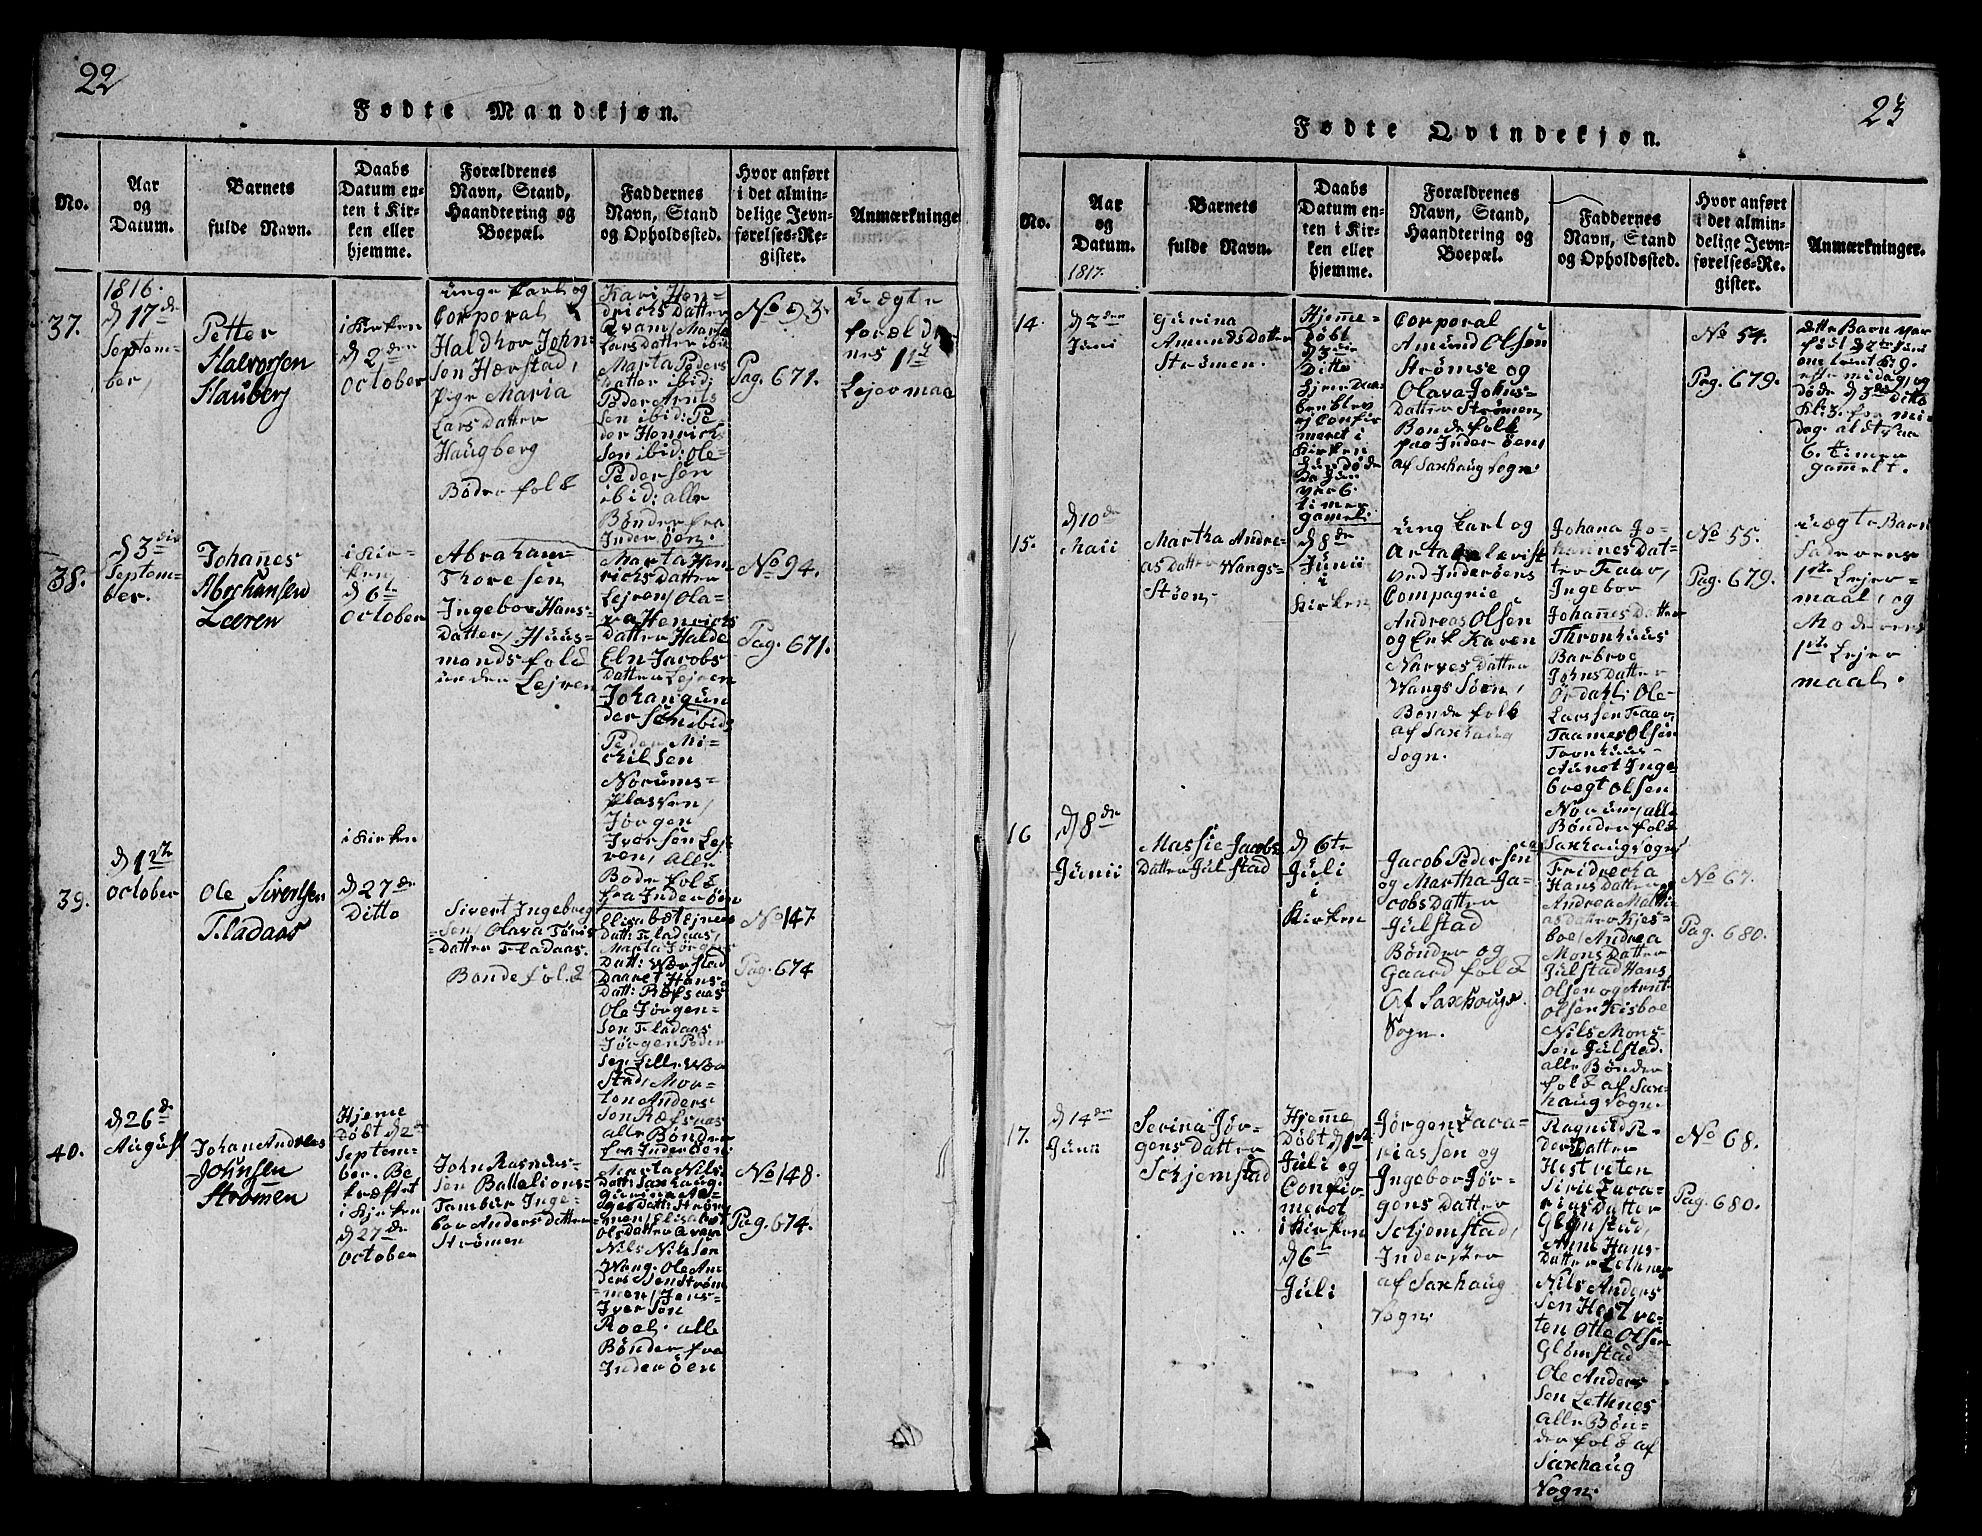 22
Fødte Mandkjøn.
No.
Aar
og
Datum.
Barnets
fulde Navn.
Daabs
Datum en-
ten i Kir-
ken eller
hjemme.
Forældrenes
Navn, Stand,
Haandtering og
Boepæl.
Faddernes
Navn, Stand
og Opholdssted.
Hvor anført
i det almin-
delige Jevn-
førelses-Re-
gister.
Anmærkninge
37.
1816.
d 17de
Septem-
ber,
Petter
Halvorsen
Hauberg
i Kirken
d 2den
October
unge Karl og
Corporal
Haldhor John-
sen Hærstad,
pige Maria
Lars Datter
Haugberg
Bønder folk
Kari Hen-
drichs Datter
Qvam, Marta
Lars datter ibid
Marta Peders
datter ibid:
Peder Arnts
sen ibid: Pe-
der Henrichs
sen ibid: Ole
Pedersen
ibid: alle
Bønder fra
Inderøen.
No 93
Pag. 671.
uægte
foreldre
nes 1te
Lejermaal
38.
d 3die
Septem-
ber.
Johañes
Abrahansen
Leeren
i Kir-
ken
d 6te
October
Abraham
Thoresen
Ingebor Hans-
Datter, Huus-
mands folk
under Lejren
Marta Hen
richs Datter
Lejren, Ola-
va Henrichs
datter Halde
Eln Jacobs
datter Lejren
Johan gun
dersen ibid
Peder Mi-
chilsen
Norums-
plassen,
Jørgen
Iversen Lej-
ren, alle
Bønder folk
fra Inderøen
No 94.
Pag. 671.
39.
d 1ste
October
Ole Sivertsen
Fladaas
i Kirken
d 27de
Ditto
Sivert Ingebreg
-sen, Olava Tøris
Datter Fladaas.
Bondefolk
Elisabet Ejners
Datt: Fladaas,
Marta Jørgens
Datt: Værstad
Daaret Hans-
Datt: Ræfsaas
Ole Jørgen-
sen Fladaas
Jørgen Peder
sen Lille Wær
stad, Mor-
ten Anders
sen Ræfsaas
alle Bønder
fra Inderøen:
No 147
Pag. 674
40.
d 26de
August
Johan Andreas
Johnsen
Strømen
Hjeme
Døbt d 2de
Septem-
ber. Be
kræftet
i Kirken
d 27de
October
John Rasmus-
sen Battelions-
Tambur Inge-
bor Anders Datter
Strømen
Marta Nils
Datt: Saxhaug,
gurina Aa-
ges Datt: Strøm
men, Elisabet
Ols Datter Qvam
Nils Nilssen
Wang. Ole An
dersen Strøm
men, Jens
Iversen
Roel. alle
Bønder fra
Inderøen
No 148.
Pag. 674.
23
Fødte Qvindekjøn.
No.
Aar
og
Datum.
1817.
Barnets
fulde Navn.
Daabs
Datum en-
ten i Kir-
ken eller
hjemme.
Forældrenes
Navn, Stand,
Haandtering og
Boepæl.
Faddernes
Navn, Stand
og Opholdssted.
Hvor anført
i det almin-
delige Jevn-
førelses-Re-
gister.
Anmærkninger.
14.
d 2den
Juni
Gurina
Amunds Datter
Strømen.
Hjeme-
Døbt
d 3die
Ditto
Hjeme Daa
ben blev
ej Confir
meret i
Kirken
Corporal
Amund Olsen
Strømse og
Olava Johns-
Datter Strømen,
Bondefolk
paa Inderøen
af Saxhaug Sogn.
No 54.
Pag. 679.
dette Barn var
født d 2den Juni
om aftent Kl 9.
eftermidag og
døde d 3die Ditto
Kl 3 formi-
dag. altsaa
6. timer
gammelt.
15.
d 10de
Maii
Martha Andre-
as Datter Wangs-
Støen.
d 8de
Junii
i
Kirken
ung Karl og
ved Inderøens
Compagnie
Andreas Olsen
og Enk Karen
Narves Datter
Wangs Søen,
Bondefolk
af Saxhaug
Sogn.
Johana Jo-
hannes Dat-
ter Faar,
Ingebor
Johañs Datter
Thronhuus
Barbroe
Johns Datter
Ørdahl. Ole
Larssen Faar,
Taames Olsen
Tronhuus-
Aunet Inge
bregt Olsen
Norum, alle
Bønder folk
Saxhaug Sogn
No 55.
Pag. 679.
uægte Barn
Faderens
1ste Lejer-
maal, og
Moderens
1ste Lejer
maal.
16
d 8de
Junii
Massie Jacobs
Datter Julstad
d 6te
Juli
i
Kirken
Jacob Pedersen
og Martha Ja-
cobs Datter
Julstad
Bønder og
Gaard folk
Af Saxhougs
Sogn.
Fridrecka
Hans Datter og
Andrea Mathi-
as Datter Kjes-
boe, Andrea
Mons Datter
Julstad Hans
Olsen og Arnt
Olsen Kisboe
Nils Mons-
sen Julstad.
alle Bønder
folk af Sax-
haug Sogn.
No 67.
Pag. 680.
17.
d 14de
Juni
Serina Jør-
gens Datter
Schjemstad
Hjeme
Døbt d 1ste
Juli og
Confir-
meret
i Kirken
d 6te
Juli
Jørgen Zaca-
riassen og
Ingebor Jør-
gens Datter
Schjemstad,
Inderster
af Saxhaug
Sogn:
Ragnild Pe-
ders Datter
Hestveten
Sirie Zaca-
rias Datter
Glømstad,
Anne Hans-
Datter Lethnes
Nils Anders
sen Hestve-
ten Otte Olsen
Glømstad
Ole Anders
sen Lethnes
alle Bøn-
derfolk af
Saxhaug
Sogn.
No 68.
Pag. 680.